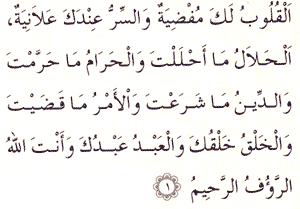 اَلْقُلُوبُ لَكَ مُفْضِيَةٌ وَالسِّرُّ عِنْدَكَ عَلَانِيَةٌ،
اَلْحَلَالُ مَا أَحْلَلْتَ وَالْحَرَامُ مَا حَرَّمْتَ
وَالدِّينُ مَا شَرَعْتَ وَالْأَمْرُ مَا قَضَيْتَ
وَالْخَلْقُ خَلْقُكَ وَالْعَبْدُ عَبْدُكَ وَأَنْتَ اللهُ
الرَّؤُفُ الرَّحِيمُ ١